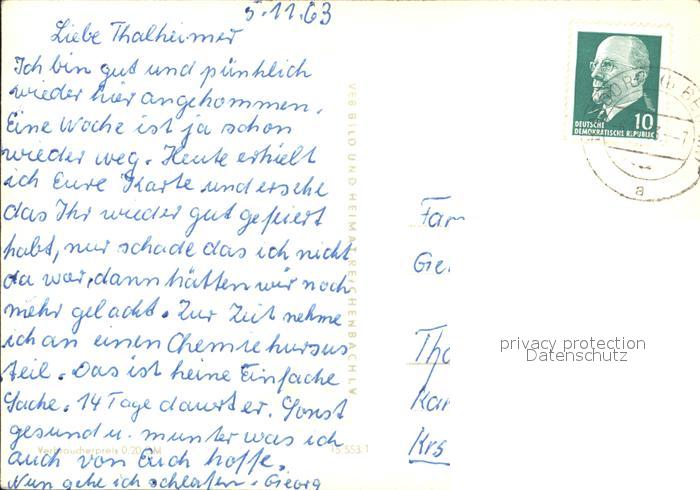 5.11.63
Liebe Thalheimer
Ich bin gut und pünktlich
wieder hier angekommen.
Eine Woche ist ja schon
wieder weg. Heute erhielt
ich Eure Karte und ersehe
das Ihr wieder gut gefeiert
habt, nur schade das ich nicht
da war, dann hätten wir noch
mehr gelacht. Zur Zeit nehme
ich an einen Chemiekursus
teil. Das ist keine Einfache
Sache. 14 Tage dauert er. Sonst
gesund u. munter was ich
auch von Euch hoffe.
Nun gehe ich schlafen. Georg
VEB BILD UND HEIMAT REICHENBACH I. V.
Verbraucherpreis 0,20 DM
DEUTSCHE
DEMOKRATISCHE REPUBLIK
10
a
Fam
Tho
Kar
Krs
privacy protection
Datenschutz